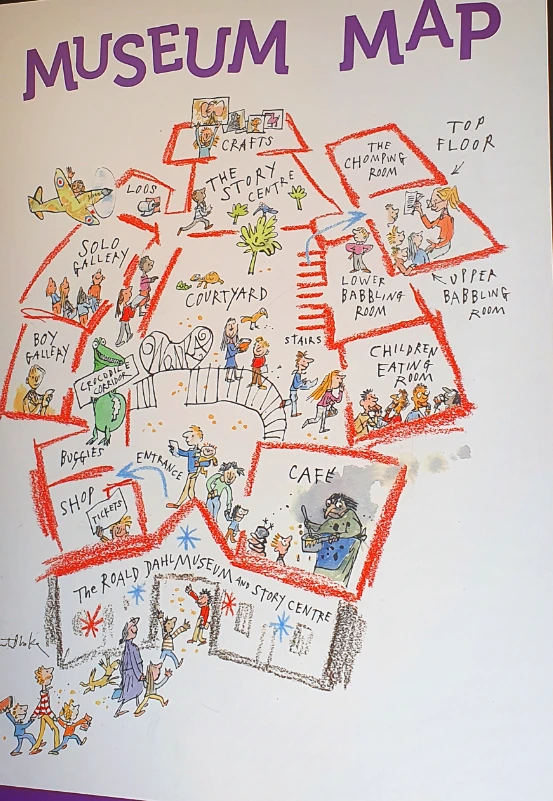 MUSEUM MAP
CRAFTS
THE
STORY
CENTRE
THE
CHOMPING
ROOM
TOP
FLOOR
LOOS
SOLO
GALLERY
COURTYARD
LOWER
BABBLING
ROOM
UPPER
BABBLING
ROOM
BOY
GALLERY
CROCODILE
CORRIDOR
STAIRS
CHILDREN
EATING
ROOM
BUGGIES
ENTRANCE
CAFÉ
SHOP
TICKETS
THE ROALD DAHL MUSEUM AND STORY CENTRE